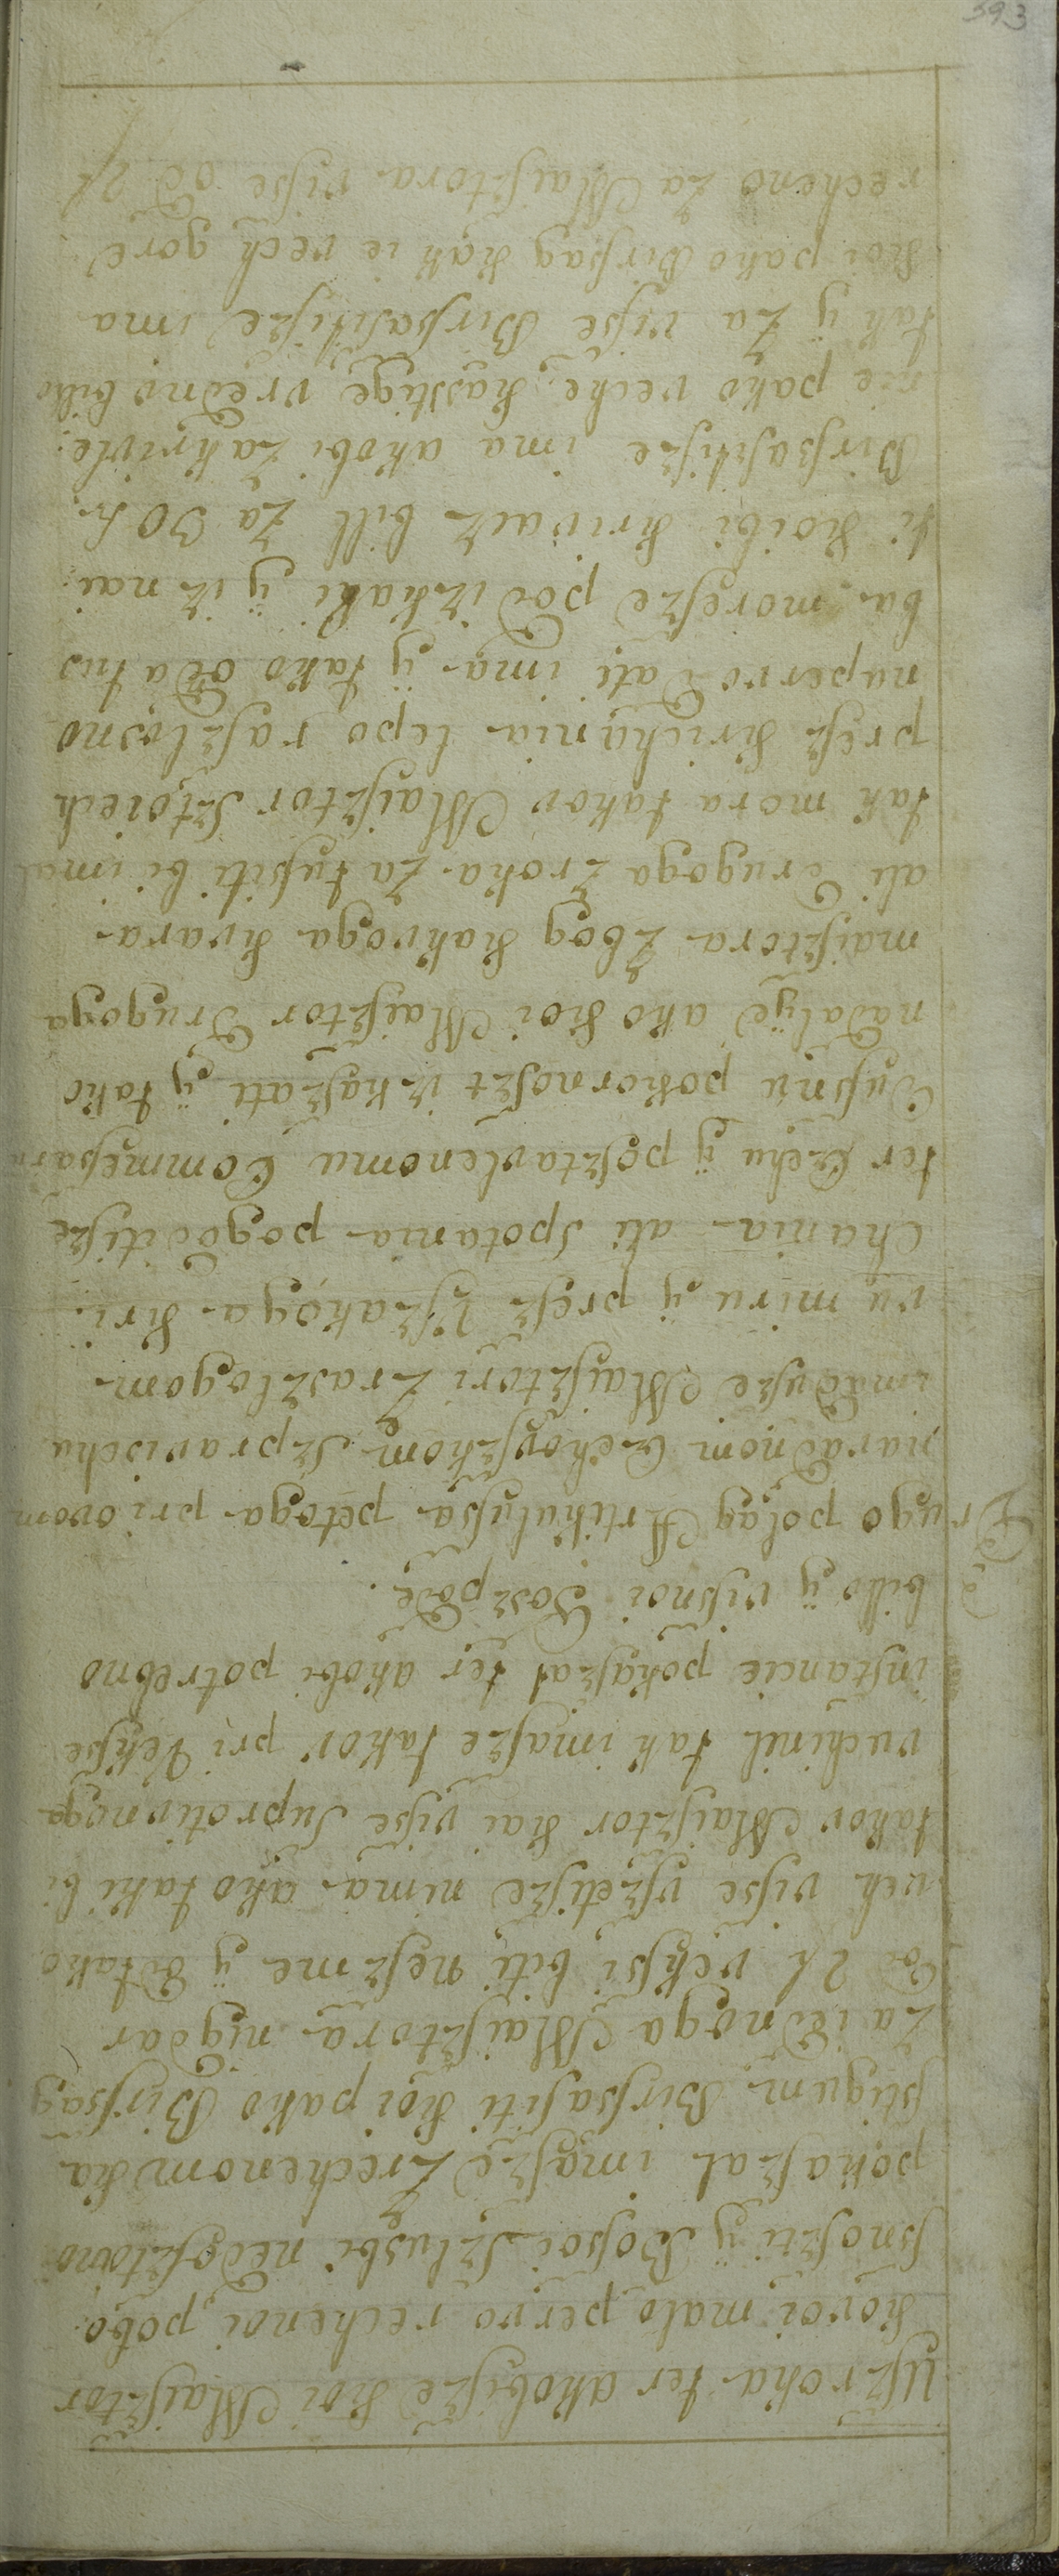 Uszroka ter akobisze koi Maisztor
kovoi malo pervo rechenoi, pobo
snoszti ÿ Bosoi szlusbi nedosztoino
pokaszal imasze zrechenom ka
stigum Birssasiti koi pako Birssag
za iednoga Maisztora nigdar
od 2 f vekssi biti neszme ÿ odtako
vech visse vszetisze nima ako taki bi
takov Maisztor kai visse suprotivnoga
vuchinil tak imasze takov pri vekse
instancie pokaszat ter akobi potrebno
bilo ÿ visnoi Goszpode.
2
Drugo polag Artikulussa petoga pri ovom
naradnom Czehovszkom szpravischu
imaduse Maisztori zraszlogom
vu miru ÿ presz vszakoga kri-
chania ali spotania pogoditisze
ter Czehu ÿ posztavlenomu Commessaru
Dusnu pokornoszt izkaszati ÿ tako
nadalye ako koi Maisztor drugoga
maisztora zbog kakvoga kvara
ali drugoga zroka za tusiti bi imal
tak mora takov Maisztor sztoiech
presz krichania lepo raszlosno
napervo dati ima ÿ tako oda tuo
ba moresze pod izkaki ÿ iz nai-
ti koibi krivacz bill za 30 k.
Birssasitisze ima akobi zakrivle-
nie pako veche kasstige vredno bilo
tak ÿ za vise Birssasitisze ima
koi pako Birssag kak ie vech gore
recheno za Maisztora vise od 2 f
393